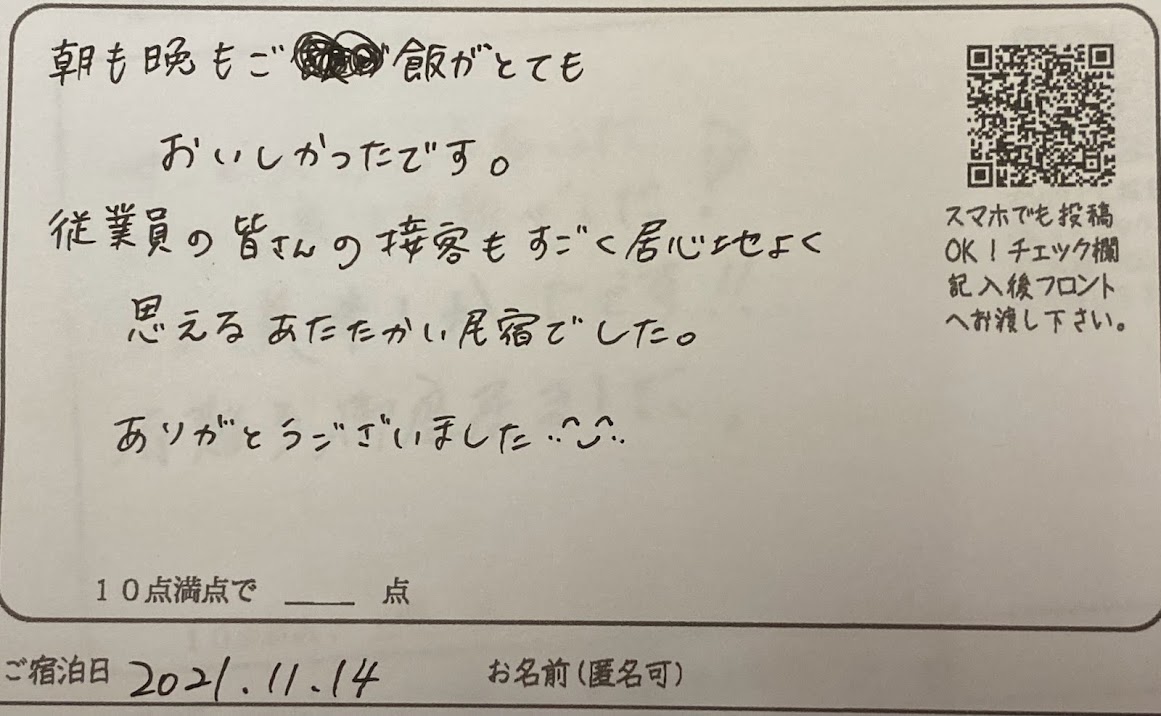 朝も晩もご飯がとても
おいしかったです。
従業員の皆さんの接客もすごく居心地よく
思えるあたたかい民宿でした。
ありがとうございました
スマホでも投稿
OK！チェック欄
記入後フロント
へお渡し下さい。
１０点満点で ____ 点
ご宿泊日 2021.11.14 お名前(匿名可)